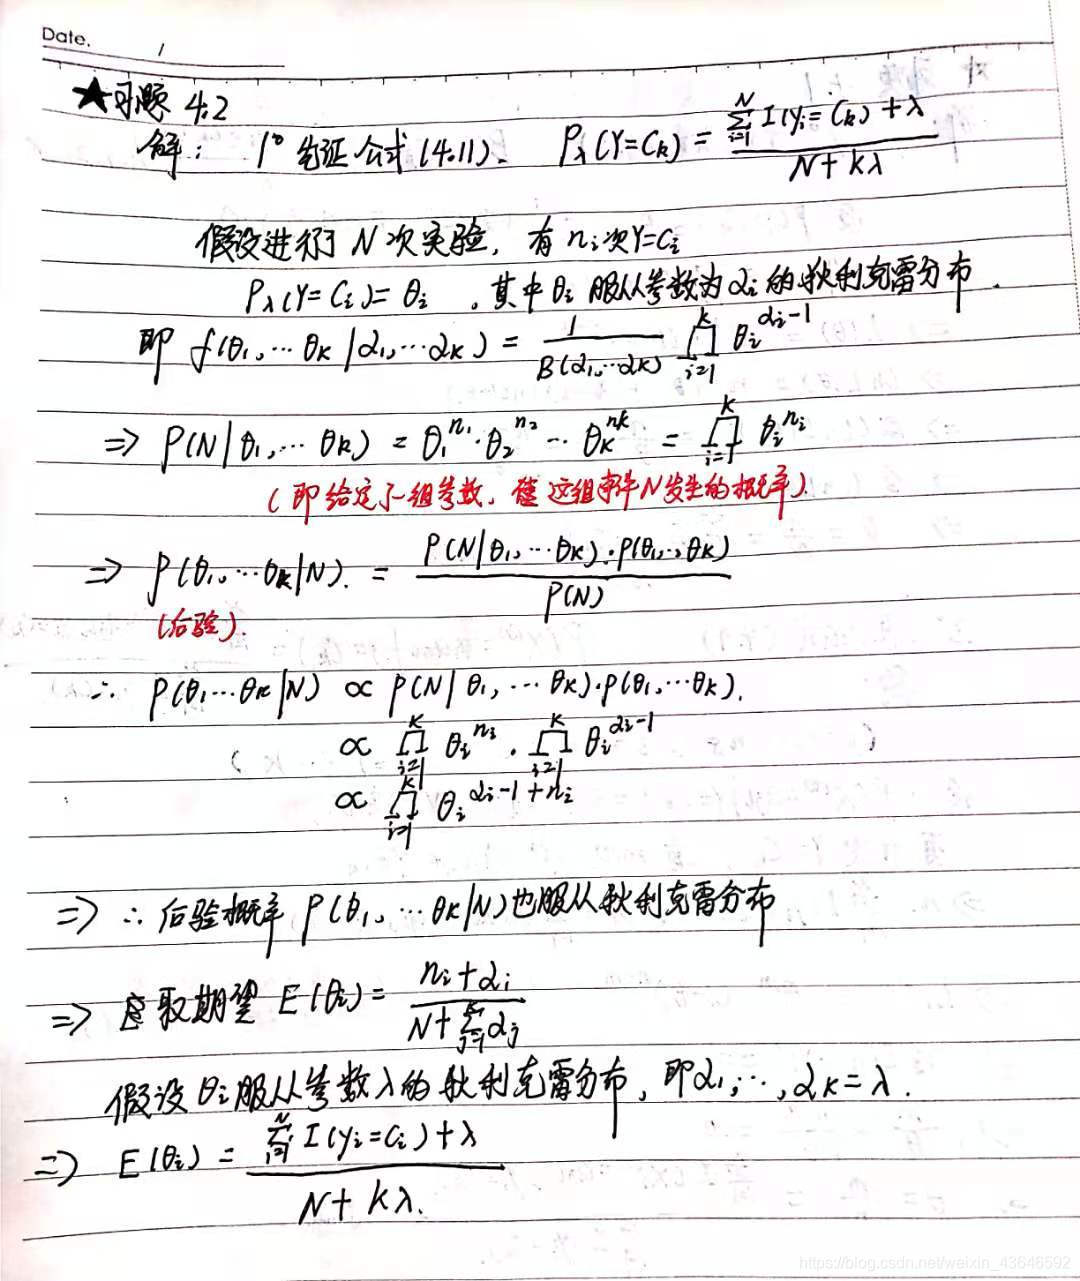 Date. /
★习题 4.2
解： 1° 先证公式 (4.11)、 Pλ(Y=Ck) = \frac{\sum_{i=1}^{N} I(yi=Ck)+λ}{N+kλ}
假设进行了 N 次实验，有 ni次Y=Ci
Pλ(Y=Ci)=θi ，其中θi 服从参数为αi的狄利克雷分布.
即 f(θ1,…θk|α1,…αk) = \frac{1}{B(α1,…αk)} \prod_{i=1}^{k} θi^{αi-1}
=> P(N|θ1,…θk) = θ1^{n1}·θ2^{n2}…θk^{nk} = \prod_{i=1}^{k} θi^{ni}
(即给定了一组参数，使这组事件N发生的概率).
=> P(θ1,…θk|N). = \frac{P(N|θ1,…θk)·P(θ1,…,θk)}{P(N)}
(后验).
∴ P(θ1…θk|N) ∝ P(N|θ1,…θk)·P(θ1,…θk).
∝ \prod_{i=1}^{k} θi^{ni} · \prod_{i=1}^{k} θi^{αi-1}
∝ \prod_{i=1}^{k} θi^{αi-1+ni}
=> ∴ 后验概率 P(θ1,…θk|N)也服从狄利克雷分布
=> 取期望 E(θi) = \frac{ni+αi}{N+\sum_{j=1}^{k} αj}
假设θi服从参数λ的狄利克雷分布，即α1,…,αk=λ.
=> E(θi) = \frac{\sum_{i=1}^{N} I(yi=Ci)+λ}{N+kλ.}
https://blog.csdn.net/weixin_43646592